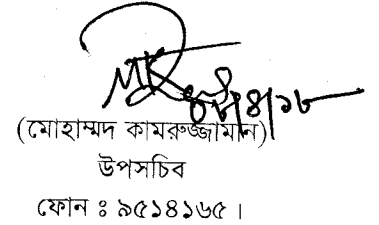 (মোহাম্মদ কামরুজ্জামান)
উপসচিব
ফোন ঃ ৯৫১৪১৬৫ ।